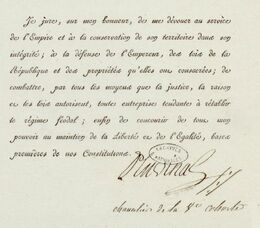 Je jure, sur mon honneur, de me dévouer au service
de l'Empire et à la conservation de son territoire dans son
intégrité; à la défense de l'Empereur, des lois de la
République et des propriétés qu'elles ont consacrées; de
combattre, par tous les moyens que la justice, la raison
et les lois autorisent, toutes entreprises tendantes à rétablir
le régime féodal; enfin de concourir de tous mon
pouvoir au maintien de la Liberté et de l'Egalité, bases
premières de nos Constitutions.
ARCHIVES
chevalier de la 8.e cohorte